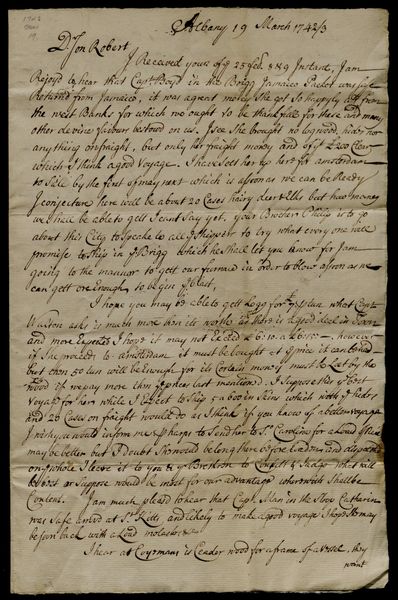 Albany 19 March 1742/3
Son Robert
I Received yours of ye 25 feb & 9 Instant, I am
Rejoyd to hear that Capt Boyd in the Brigg Jamaico Packet was safe
Returned from Jamaico, it was a great mercy She got So happyly off from
the west Banks for which we ought to be thankfull for these and many
other devine favours bestoud on us. I see She brought no logwood, hides nor
any thing on fraight, but only her fraight money and of £200 Clear
which I think a good Voyage. I have sett her up here for amsterdam
to Sail by the first of may next which is as soon as we can be Ready
I conjecture here will be about 20 Cases hairy deer & Elks but how many
we shall be able to gett I cant Say yet, your Brother Philip is to go
about this City to Speake to all ye Shippers to try what every one will
promise to Ship in ye Brigg which he shall let you know for I am
going to the mannor to gett our furnace in order to blow as soon as we
can gett ore Enough to begin ye blast,
I hope you may be able to gett Logw for tun what Capt
Walton asks is much more then its worth as there is a good deal in Town
and more Expected I hope it may not Exceed however
if She proceeds to amsterdam it must be bought at ye price it can be had
but then 50 tun will be Enough for its Certain more must be Lost by the
wood if we pay more then ye prices last mentioned. I Suppose this ye best
Voyage for her while I Expect to Ship Skins with ye hides
and 20 Cases on fraight would do as I think if you know of a better voyage
I wish you would inform me perhaps to Send her to So Carolina for a Load of Rice
may be better but I doubt She would be long there before Loaden and dispatched
on ye whole I leave it to you & ye Brethren to Consult & Judge what will
be best or Suppose would be most for our advantage wherewith I shall be
Content. I am much pleased to hear that Capt Man in the Sloop Catharin
was Safe arrivd at St Kitts and likely to make a good voyage I hope She may
be soon back with a Load molasses
I hear at Coeymans is Ceader wood for a frame of a vessel, they
want